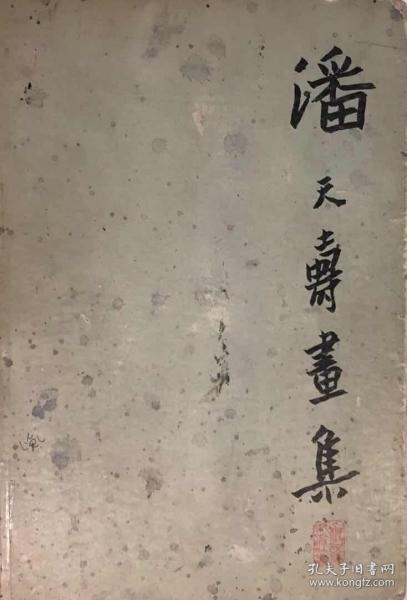 潘天壽畫集
孔夫子旧书网
www.kongfz.com